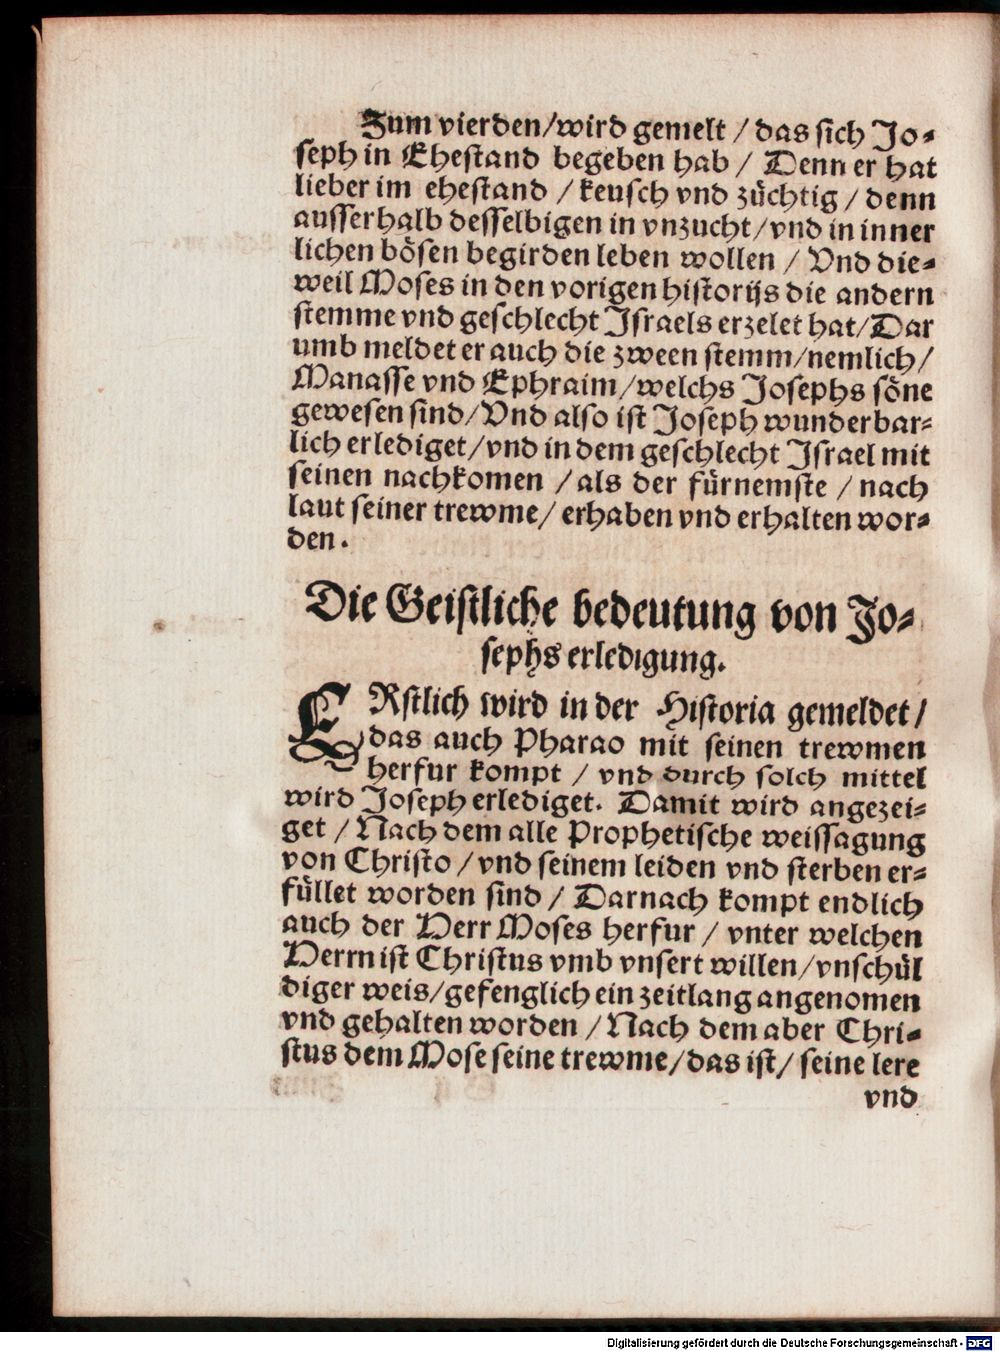 Zum vierden/wird gemelt / das sich Jo-
seph in Ehestand begeben hab / Denn er hat
lieber im ehestand / keusch vnd züchtig / denn
ausserhalb desselbigen in vnzucht/vnd in inner
lichen bösen begirden leben wollen / Vnd die-
weil Moses in den vorigen historijs die andern
stemme vnd geschlecht Israels erzelet hat/Dar
umb meldet er auch die zween stemm/nemlich/
Manasse vnd Ephraim/welchs Josephs söne
gewesen sind/Vnd also ist Joseph wunderbar-
lich erlediget/vnd in dem geschlecht Israel mit
seinen nachkomen / als der fürnemste / nach
laut seiner trewme/ erhaben vnd erhalten wor-
den.
Die Geistliche bedeutung von Jo-
sephs erledigung.
ERstlich wird in der Historia gemeldet/
das auch Pharao mit seinen trewmen
herfur kompt / vnd durch solch mittel
wird Joseph erlediget. Damit wird angezei-
get / Nach dem alle Prophetische weissagung
von Christo / vnd seinem leiden vnd sterben er-
füllet worden sind / Darnach kompt endlich
auch der Herr Moses herfur / vnter welchen
Herrn ist Christus vmb vnsert willen/vnschül
diger weis/gefenglich ein zeitlang angenomen
vnd gehalten worden / Nach dem aber Chri-
stus dem Mose seine trewme/das ist/ seine lere
vnd
Digitalisierung gefördert durch die Deutsche Forschungsgemeinschaft - DFG